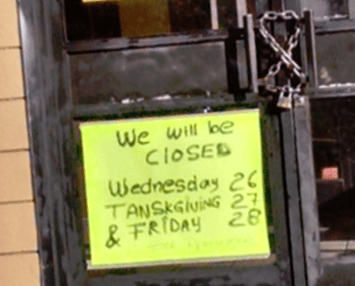 We will be
CLOSED
Wednesday 26
TANSKGIVING 27
& FRIDAY 28